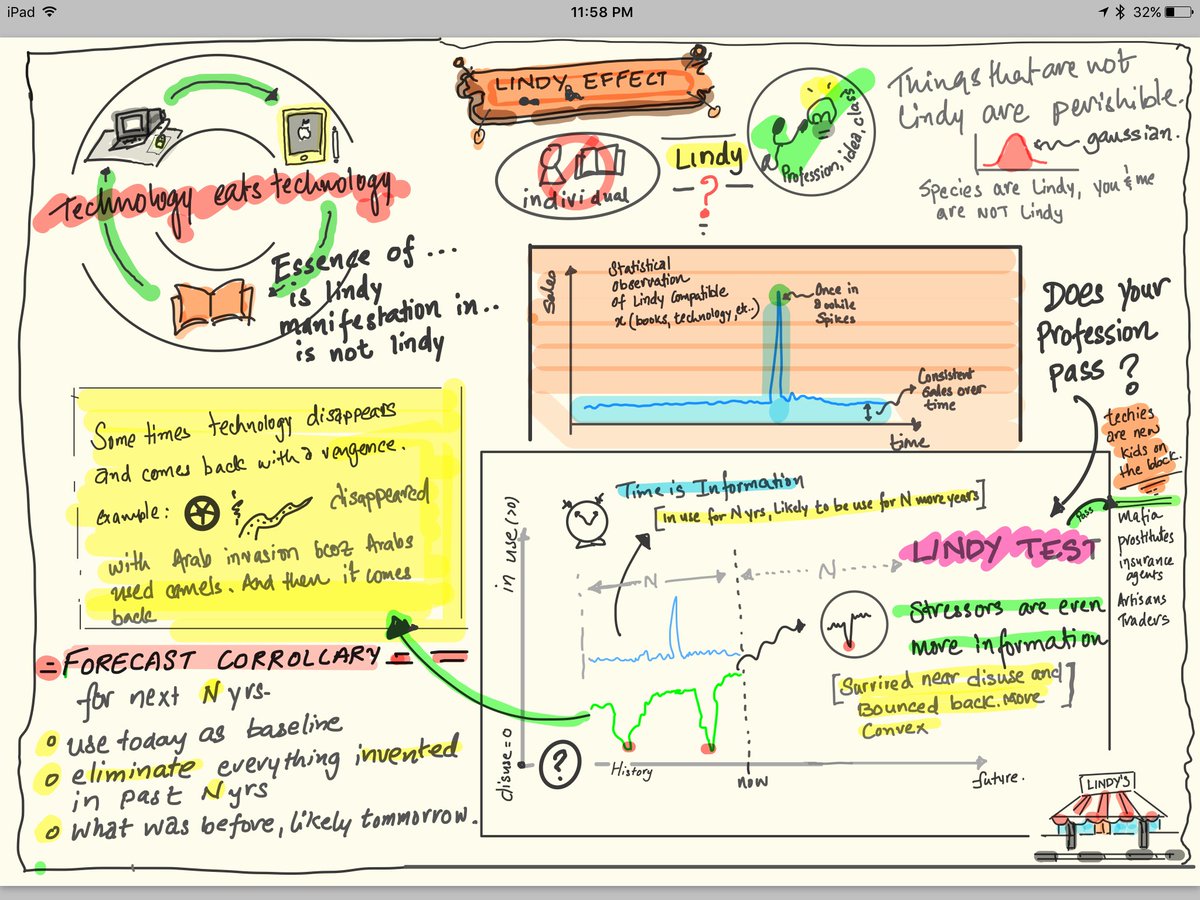 iPad
11:58 PM
32%
LINDY EFFECT
individual
Lindy
?
Profession, idea, class
Things that are not
Lindy are perishible.
gaussian.
Species are Lindy, you & me
are NOT Lindy
Technology eats technology
Essence of ...
is lindy
manifestation in..
is not lindy
Sales
Statistical
observation
of Lindy compatible
x (books, technology, etc..)
Once in
a while
Spikes
Consistent
Sales over
time
time
Does your
Profession
pass ?
techies
are new
kids on
the block.
Pass
Mafia
prostitutes
insurance
agents
Artisans
Traders
Some times technology disappears
and comes back with a vengence.
example:
disappeared
with Arab invasion bcoz Arabs
used camels. And then it comes
back
= FORECAST CORROLLARY =
for next N yrs-
use today as baseline
eliminate everything invented
in past N yrs
what was before, likely tommorrow.
in use (>0)
disuse = 0
Time is Information
[In use for N yrs, Likely to be use for N more years]
N
N
LINDY TEST
Stressors are even
more information
[Survived near disuse and
Bounced back. More
Convex]
?
History
now
future.
LINDY'S